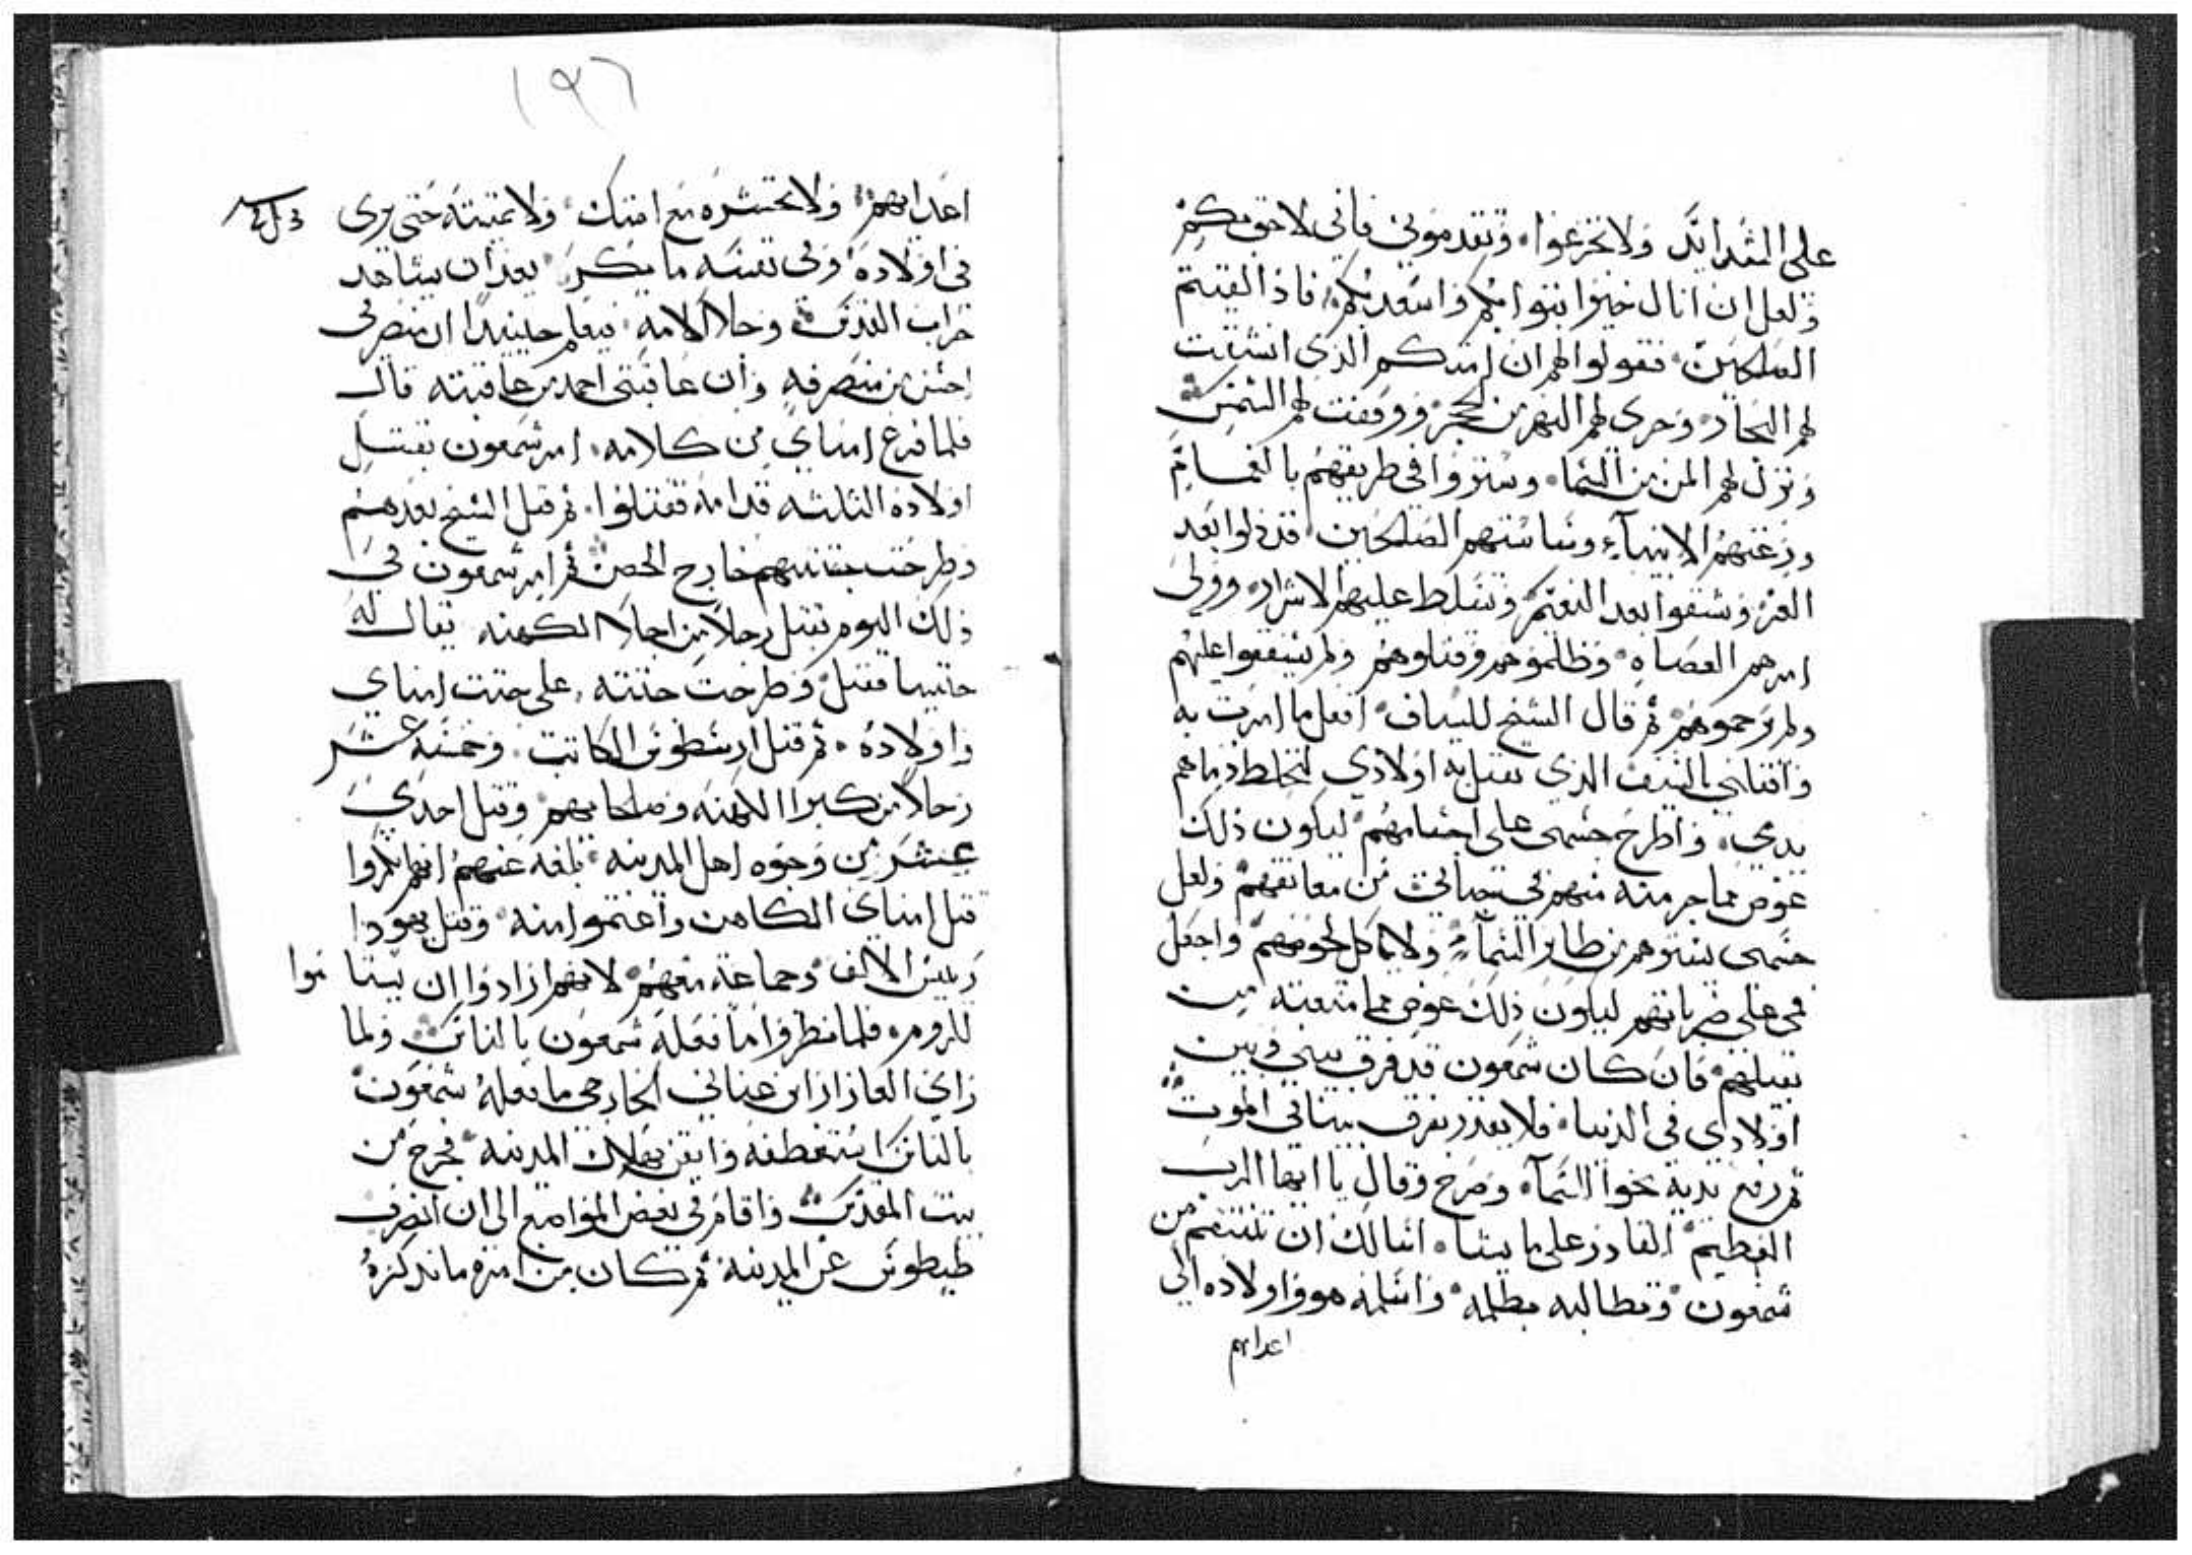 على الشدايد ولا تجزعوا وتقدموني فاني لاحق بكم
ولعل ان انال خيرا بثوابكم واسعد بكم فاذا لقيتم
الصالحين فقولوا لهم ان امتكم الذي انشقت
لهم البحار وجرى لهم النهر من الحجر ووقفت لهم الشمس
ونزل لهم المن من السما وستروا في طريقهم بالغمام
ورعتهم الانبيآء وساستهم الصالحين قد ذلوا بعد
العز وشقوا بعد النعم وتسلط عليهم الاشرار وولي
امرهم العصاه وظلموهم وقتلوهم ولم يشفقوا عليهم
ولم يرحموهم ثم قال الشيخ للسياف افعل ما امرت به
واقتلني بالسيف الذي تقتل به اولادي لتختلط دماهم
بدمي واطرح جسمي على اجسامهم ليكون ذلك
عوض مما حرمته منهم في حياتي من معانقتهم ولعل
جسمي يسترهم من طاير السمآء ولا ياكل لحومهم واجعل
فمي على ضرباتهم ليكون ذلك عوض مما منعته من
تقبيلهم فان كان شمعون قد فرق بيني وبين
اولادي في الدنيا فلا يقدر يفرق بيننا في الموت
ثم رفع يديه نحو السمآء وصرخ وقال يا ايها الرب
العظيم القادر على ما يشا اسالك ان تنتقم من
شمعون وتطالبه بظلمه واسلمه هو واولاده الي
اعدايهم
١٩٦
اعدايهم ولا تحشره مع امتك ولا تميته حتى يرى
في اولاده وفي نفسه ما يكره بعد ان يشاهد
خراب القدس وجلا الامه فيعلم حينيدا ان منصرفي
احسن من منصرفه وان عاقبتي احمد من عاقبته قال
فلما فرغ امتاي من كلامه امر شمعون بقتل
اولاده الثلثه قدامه فقتلوا ثم قتل الشيخ بعدهم
وطرحت جثتهم خارج الحصن ثم امر شمعون في
ذلك اليوم بقتل رجلا من اجلا الكهنه يقال له
حنيبا فقتل وطرحت جثته على جثت امتاي
واولاده ثم قتل ارسطوس الكاتب وخمسه عشر
رجلا من كبرا الكهنه وصلحايهم وقتل احدي
عشر من وجوه اهل المدينه بلغه عنهم انهم انكروا
قتل امتاي الكاهن واغتموا منه وقتل يهودا
رييس الالف وجماعة معهم لانهم ارادوا ان يستامنوا
للروم فلما نظروا ما فعله شمعون بالناس ولما
راي العازار ابن عناني الخارجي ما فعله شمعون
بالناس استفظعه وايقن بهلاك المدينه فخرج من
بيت المقدس واقام في بعض المواضع الى ان انصرف
طيطوس عن المدينه ثم كان من امره ما نذكره